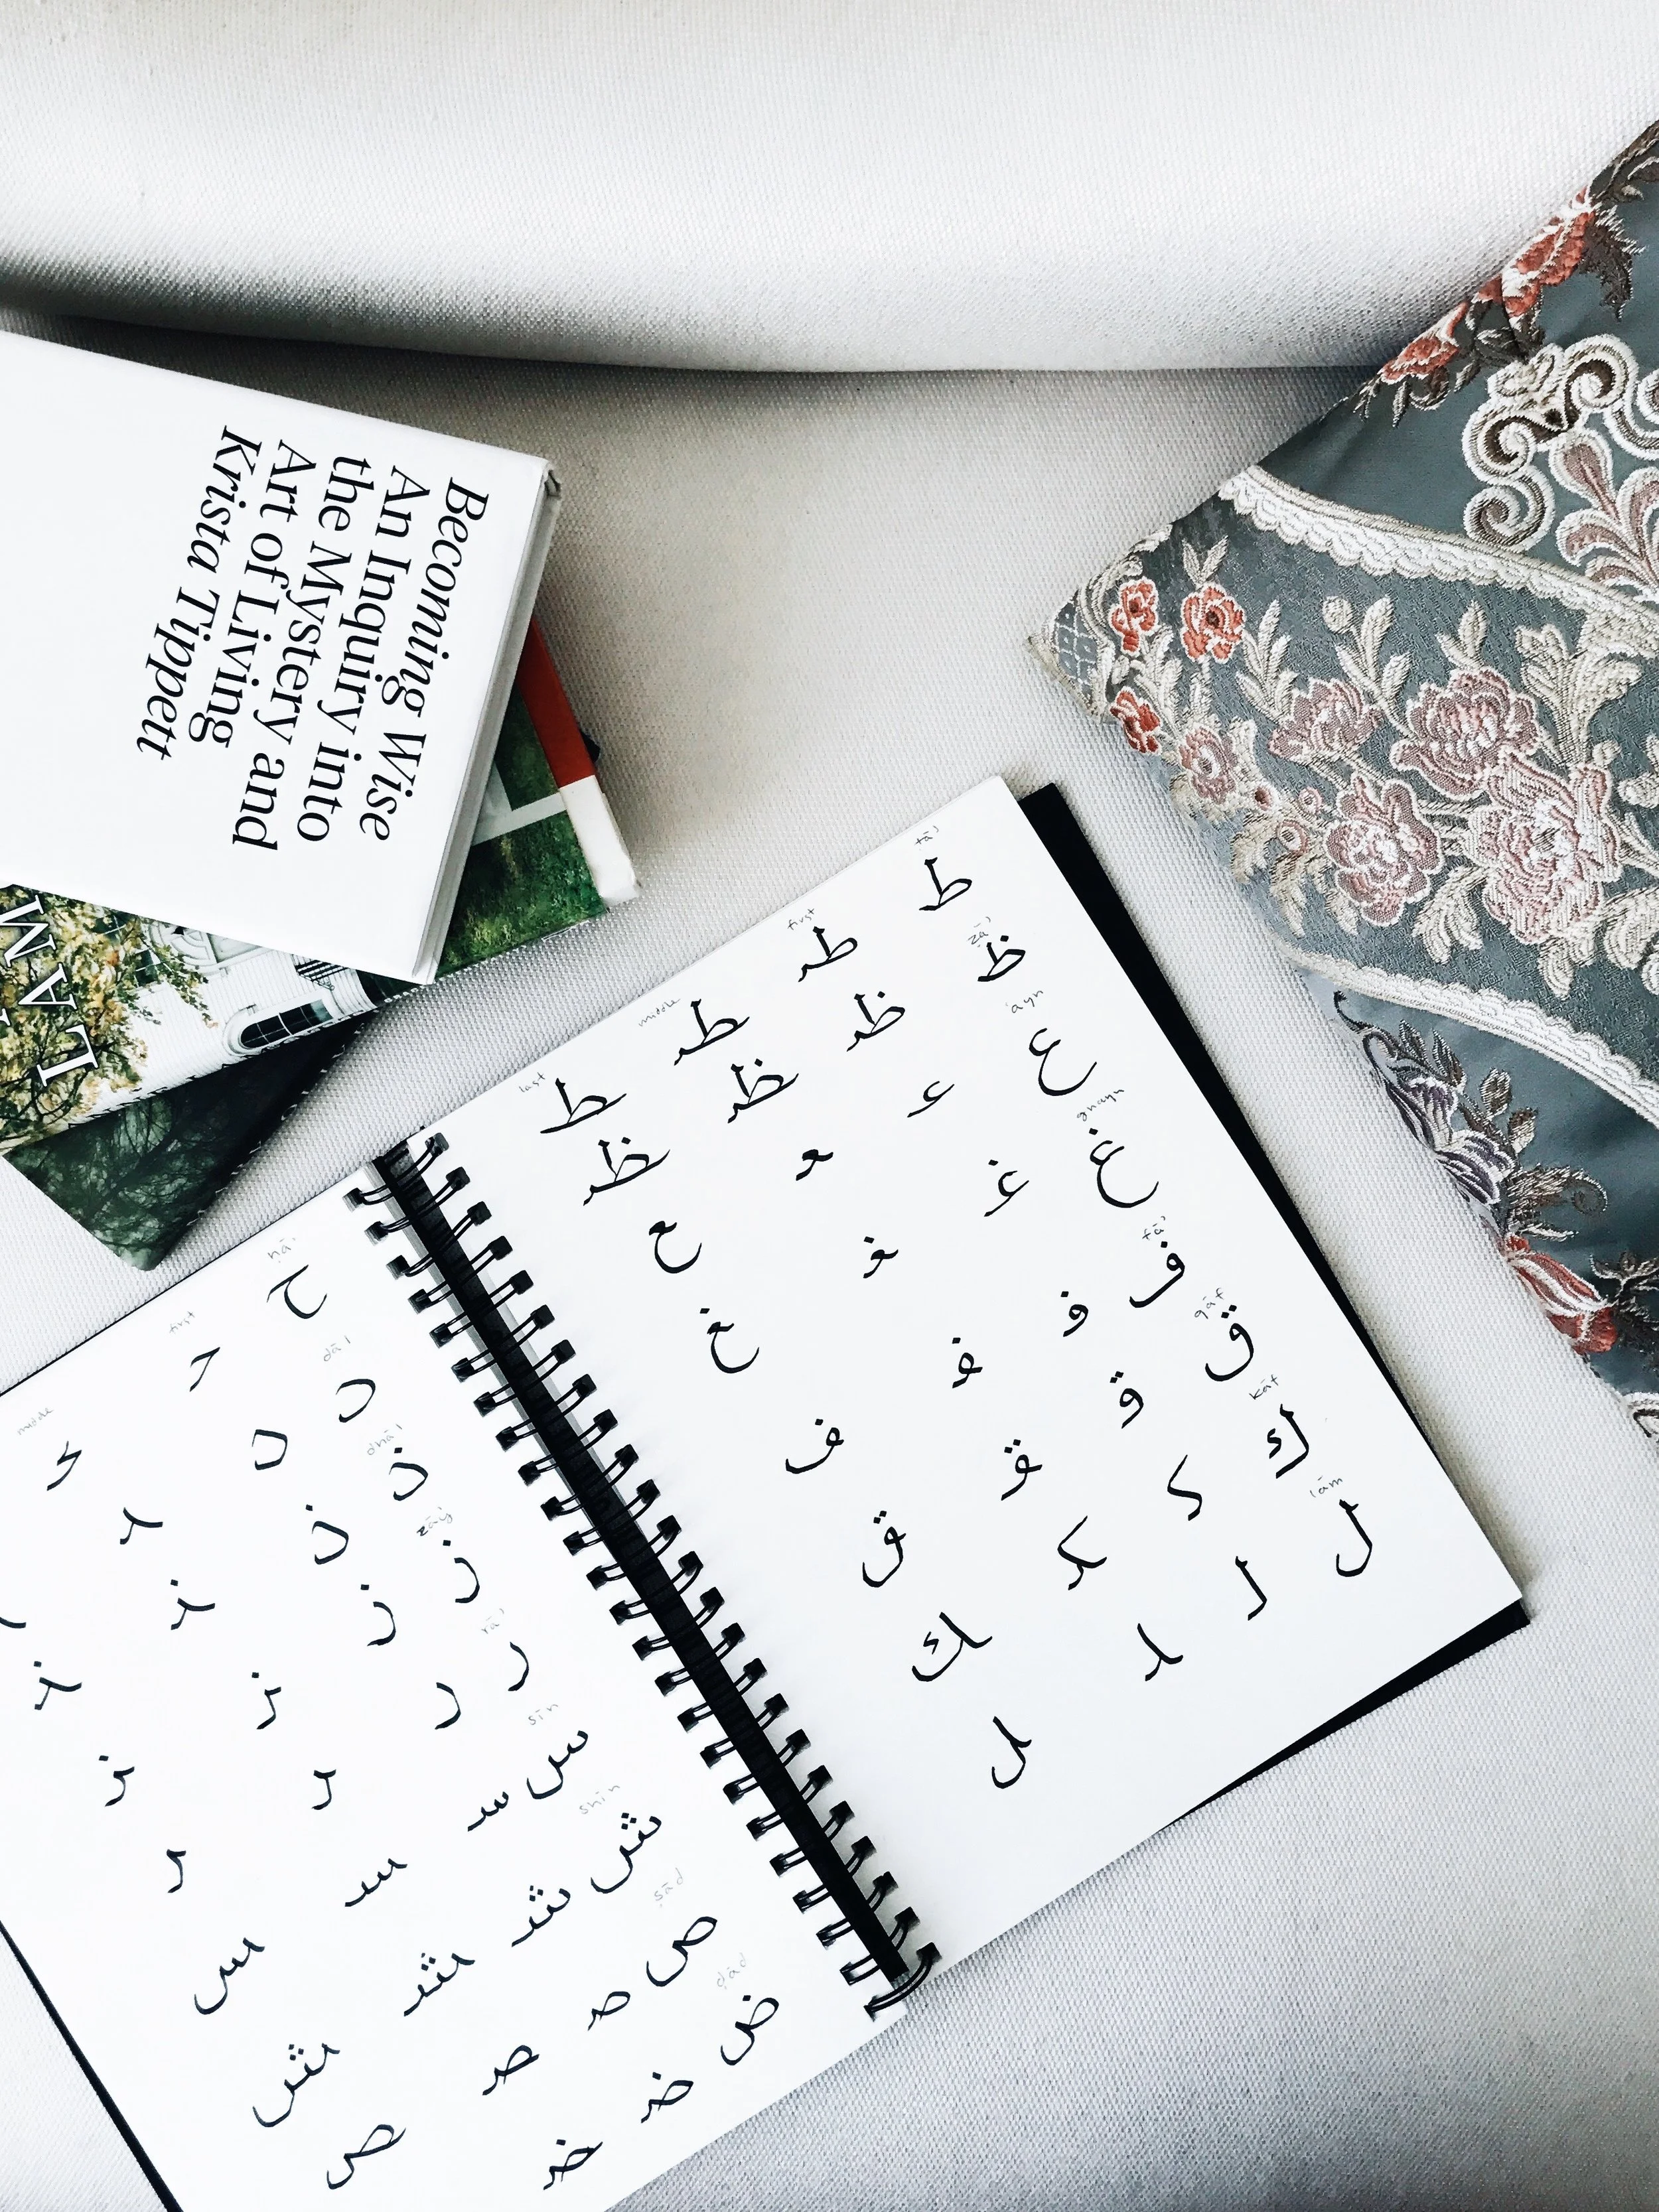 Becoming Wise
An Inquiry into
the Mystery and
Art of Living
Krista Tippett
LAM
ṭā' first middle last
ط طـ ـطـ ـط
ẓā'
ظ ظـ ـظـ ـظ
'ayn
ع عـ ـعـ ـع
ghayn
غ غـ ـغـ ـغ
fā'
ف فـ ـفـ ـف
qāf
ق قـ ـقـ ـق
kāf
ك كـ ـكـ ـك
lām
ل لـ ـلـ ـل
ḥā' first middle
ح حـ ـحـ
dāl
د د ـد
dhāl
ذ ذ ـذ ـذ
zāy
ز ز ـز ـز
rā'
ر ر ـر ـر
sīn
س سـ ـسـ ـس
shīn
ش شـ ـشـ ـش
ṣād
ص صـ ـصـ ـص
ḍād
ض ضـ ـضـ